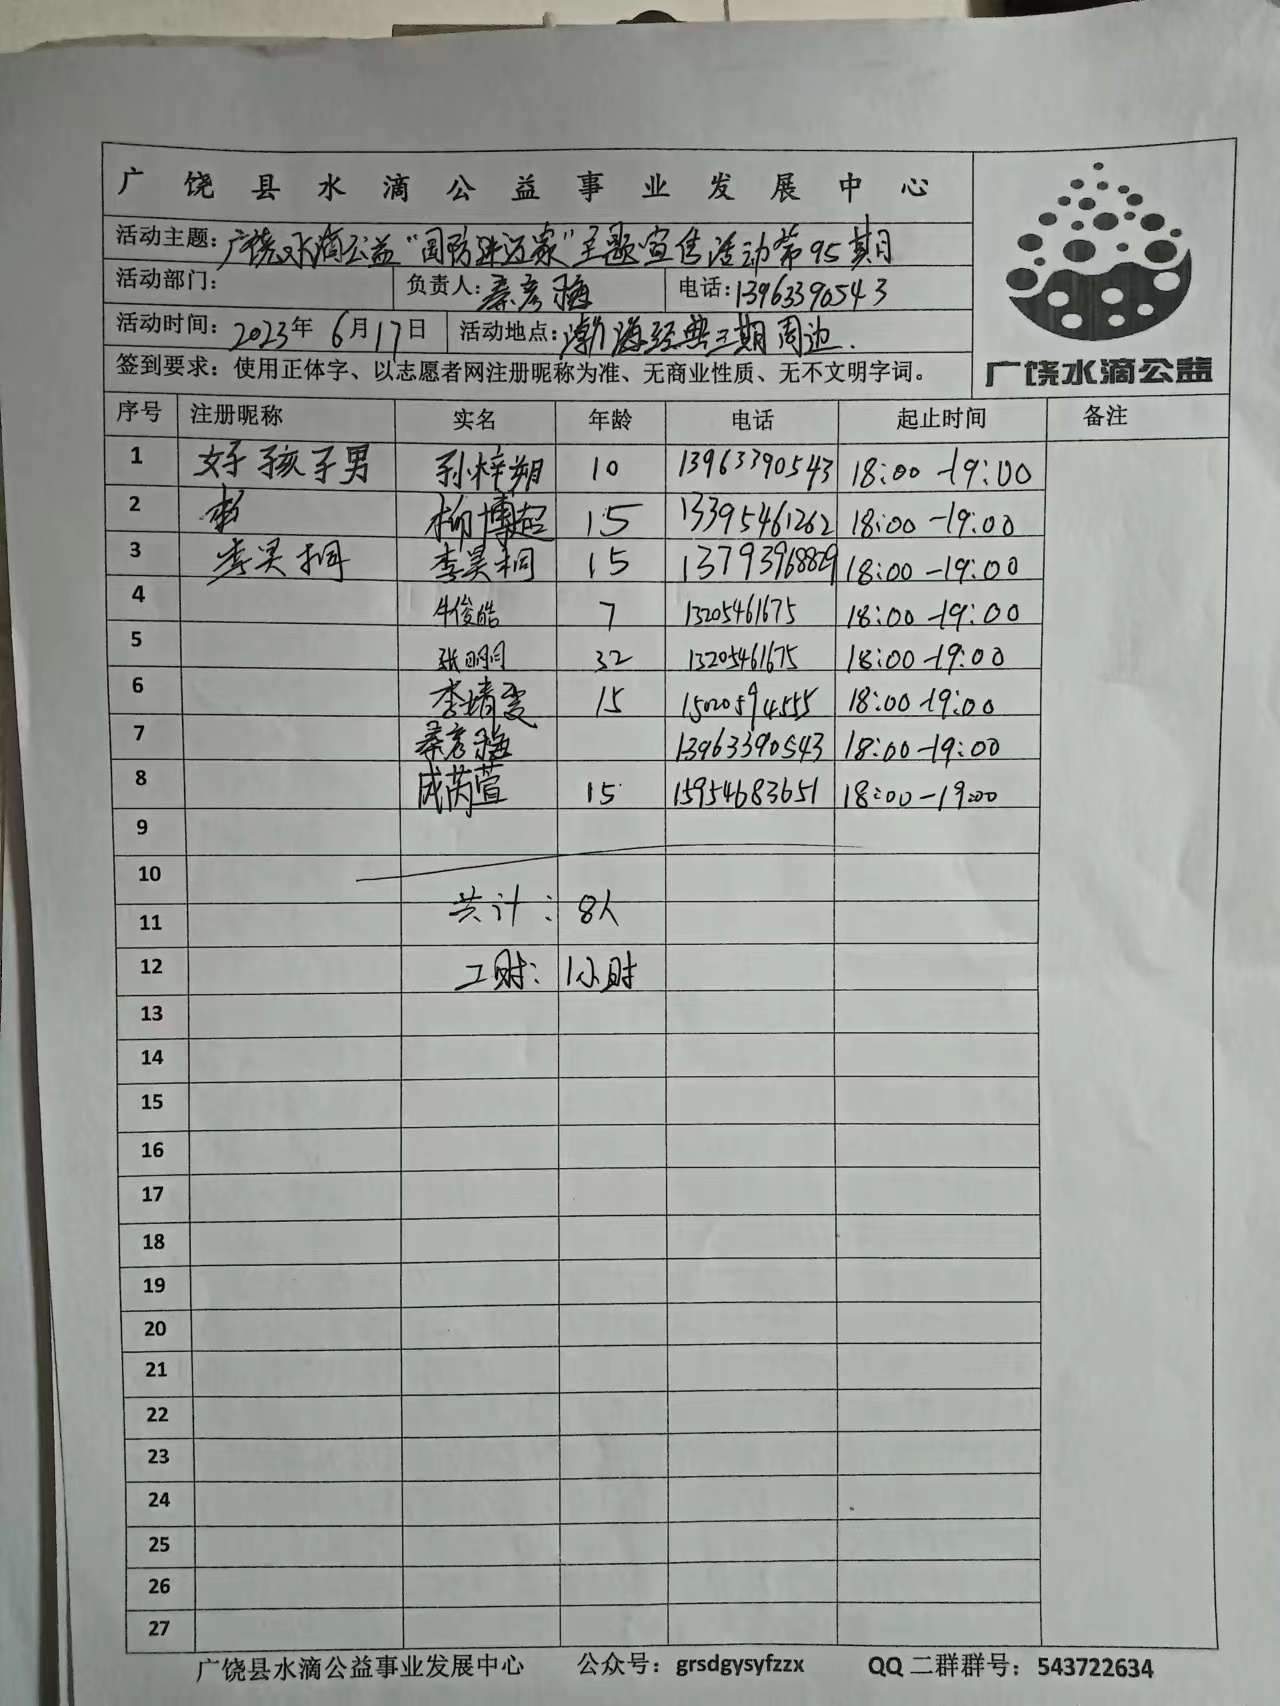 广饶县水滴公益事业发展中心
活动主题：广饶水滴公益“国防进万家”主题宣传活动第95期
活动部门： 负责人：秦彦梅 电话：13963390543
活动时间：2023年6月17日 活动地点：渤海经典三期周边.
签到要求：使用正体字、以志愿者网注册昵称为准、无商业性质、无不文明字词。
广饶水滴公益
序号 注册昵称 实名 年龄 电话 起止时间 备注
1 女子孩子男 孙梓朔 10 13963390543 18:00-19:00
2 柳博超 15 13395461262 18:00-19:00
3 李昊桐 李昊桐 15 13793968829 18:00-19:00
4 牛俊皓 7 13205461675 18:00-19:00
5 张明明 32 13205461675 18:00-19:00
6 李婧雯 15 15020594555 18:00-19:00
7 秦彦梅 13963390543 18:00-19:00
8 成芮萱 15 15954683651 18:00-19:00
9
10
11 共计：8人
12 工时：1小时
13
14
15
16
17
18
19
20
21
22
23
24
25
26
27
广饶县水滴公益事业发展中心 公众号：grsdgysyfzzx QQ二群群号：543722634